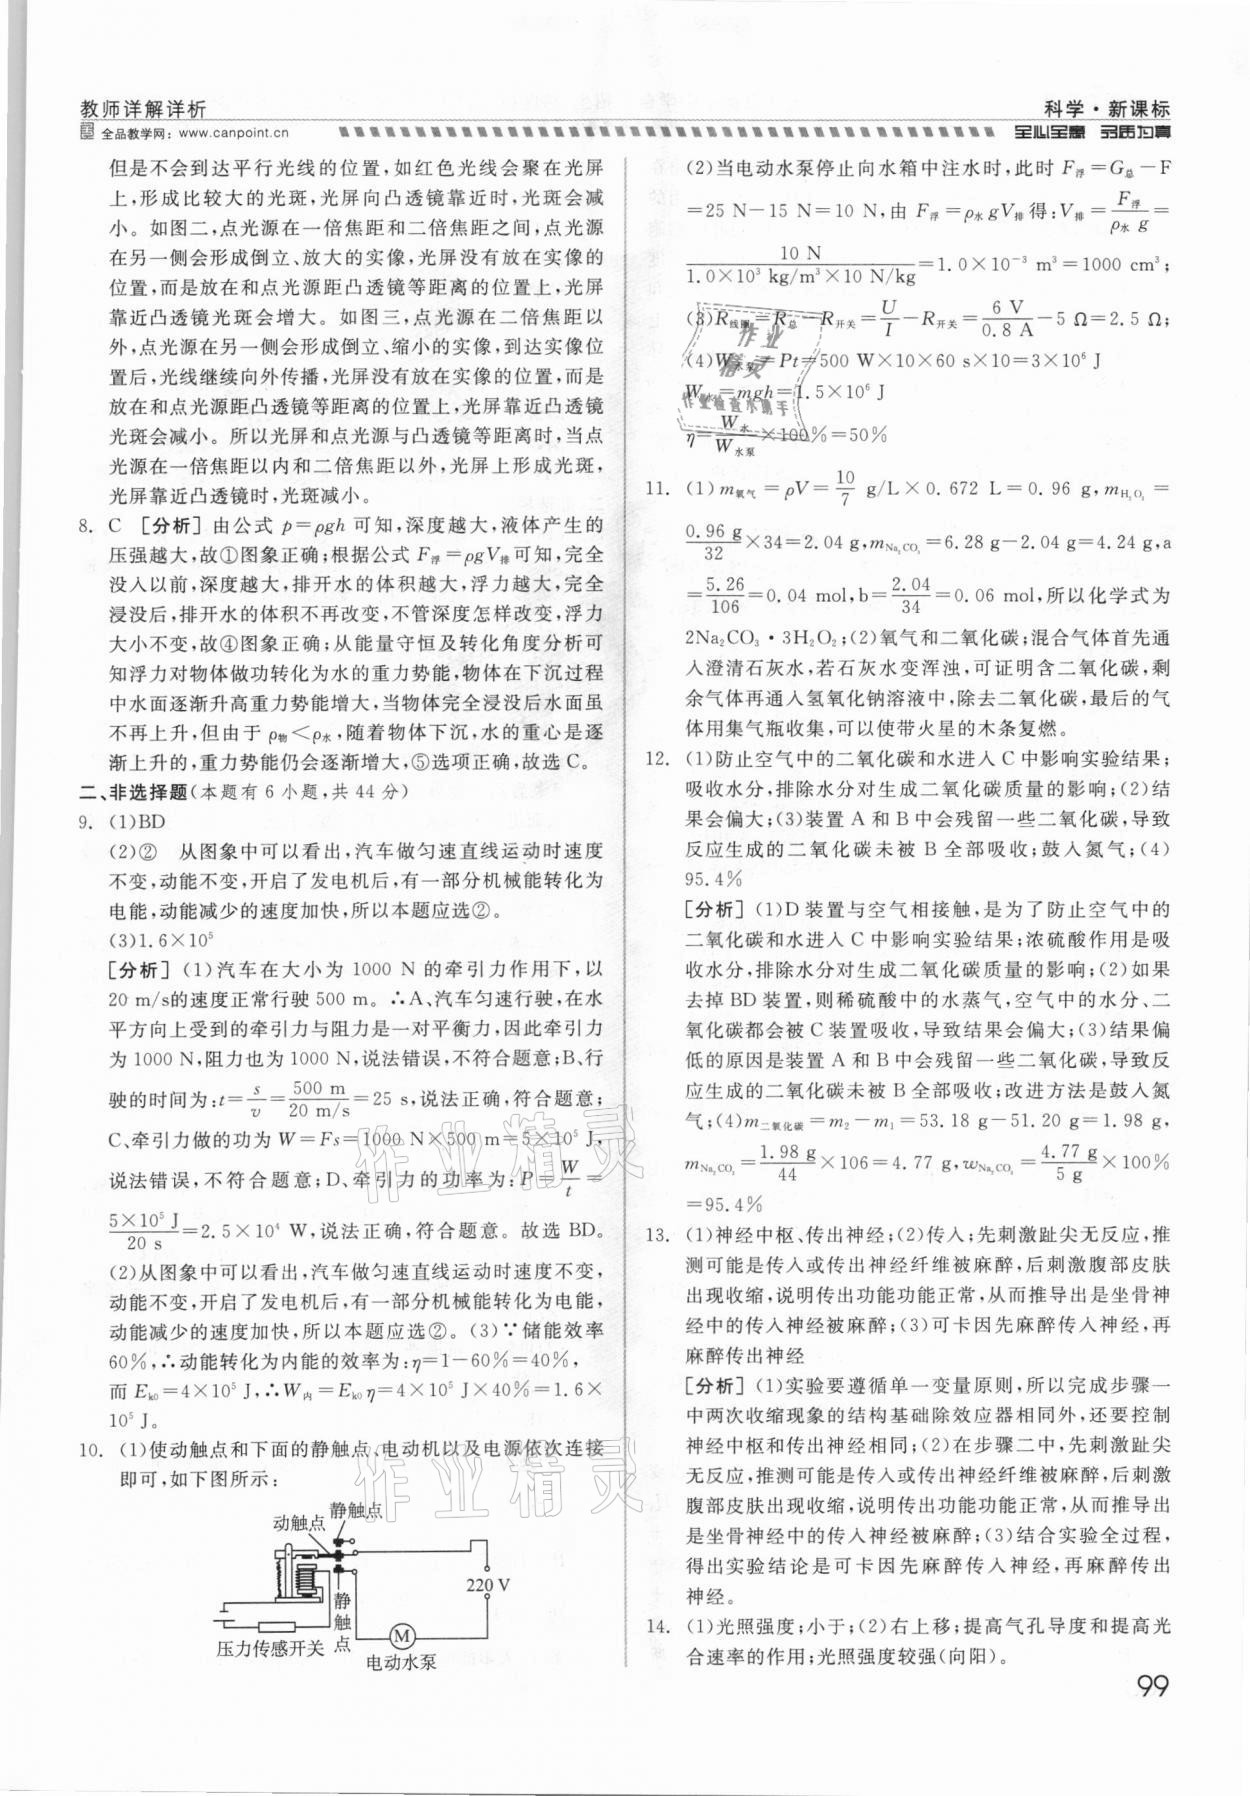 教师详解详析
科学·新课标
全品教学网：www.canpoint.cn
全心全意 品质为真
但是不会到达平行光线的位置，如红色光线会聚在光屏
上，形成比较大的光斑，光屏向凸透镜靠近时，光斑会减
小。如图二，点光源在一倍焦距和二倍焦距之间，点光源
在另一侧会形成倒立、放大的实像，光屏没有放在实像的
位置，而是放在和点光源距凸透镜等距离的位置上，光屏
靠近凸透镜光斑会增大。如图三，点光源在二倍焦距以
外，点光源在另一侧会形成倒立、缩小的实像，到达实像位
置后，光线继续向外传播，光屏没有放在实像的位置，而是
放在和点光源距凸透镜等距离的位置上，光屏靠近凸透镜
光斑会减小。所以光屏和点光源与凸透镜等距离时，当点
光源在一倍焦距以内和二倍焦距以外，光屏上形成光斑，
光屏靠近凸透镜时，光斑减小。
8. C [分析] 由公式 p=ρgh 可知，深度越大，液体产生的
压强越大，故①图象正确；根据公式 F浮=ρgV排可知，完全
没入以前，深度越大，排开水的体积越大，浮力越大，完全
浸没后，排开水的体积不再改变，不管深度怎样改变，浮力
大小不变，故④图象正确；从能量守恒及转化角度分析可
知浮力对物体做功转化为水的重力势能，物体在下沉过程
中水面逐渐升高重力势能增大，当物体完全浸没后水面虽
不再上升，但由于 ρ物＜ρ水，随着物体下沉，水的重心是逐
渐上升的，重力势能仍会逐渐增大，⑤选项正确，故选 C。
二、非选择题(本题有 6 小题，共 44 分)
9. (1)BD
(2)② 从图象中可以看出，汽车做匀速直线运动时速度
不变，动能不变，开启了发电机后，有一部分机械能转化为
电能，动能减少的速度加快，所以本题应选②。
(3)1.6×10⁵
[分析] (1)汽车在大小为 1000 N 的牵引力作用下，以
20 m/s的速度正常行驶 500 m。∴A、汽车匀速行驶，在水
平方向上受到的牵引力与阻力是一对平衡力，因此牵引力
为 1000 N，阻力也为 1000 N，说法错误，不符合题意；B、行
驶的时间为：t=s/v=500 m/20 m/s=25 s，说法正确，符合题意；
C、牵引力做的功为 W=Fs=1000 N×500 m=5×10⁵ J，
说法错误，不符合题意；D、牵引力的功率为：P=W/t=
5×10⁵ J/20 s=2.5×10⁴ W，说法正确，符合题意。故选 BD。
(2)从图象中可以看出，汽车做匀速直线运动时速度不变，
动能不变，开启了发电机后，有一部分机械能转化为电能，
动能减少的速度加快，所以本题应选②。(3)∵储能效率
60%，∴动能转化为内能的效率为：η=1－60%=40%，
而 Ek0=4×10⁵ J，∴W内=Ek0η=4×10⁵ J×40%=1.6×
10⁵ J。
10. (1)使动触点和下面的静触点、电动机以及电源依次连接
即可，如下图所示：
静触点
动触点
220 V
静触点
M
压力传感开关
电动水泵
(2)当电动水泵停止向水箱中注水时，此时 F浮=G总－F
=25 N－15 N=10 N，由 F浮=ρ水gV排得：V排=F浮/ρ水g=
10 N/1.0×10³ kg/m³×10 N/kg=1.0×10⁻³ m³=1000 cm³；
(3)R线圈=R总－R开关=U/I－R开关=6 V/0.8 A－5 Ω=2.5 Ω；
(4)W水泵=Pt=500 W×10×60 s×10=3×10⁶ J
W水=mgh=1.5×10⁶ J
η=W水/W水泵×100%=50%
11. (1)m氧气=ρV=10/7 g/L×0.672 L=0.96 g，mH₂O₂=
0.96 g/32×34=2.04 g，mNa₂CO₃=6.28 g－2.04 g=4.24 g，a
=5.26/106=0.04 mol，b=2.04/34=0.06 mol，所以化学式为
2Na₂CO₃·3H₂O₂；(2)氧气和二氧化碳；混合气体首先通
入澄清石灰水，若石灰水变浑浊，可证明含二氧化碳，剩
余气体再通入氢氧化钠溶液中，除去二氧化碳，最后的气
体用集气瓶收集，可以使带火星的木条复燃。
12. (1)防止空气中的二氧化碳和水进入 C 中影响实验结果；
吸收水分，排除水分对生成二氧化碳质量的影响；(2)结
果会偏大；(3)装置 A 和 B 中会残留一些二氧化碳，导致
反应生成的二氧化碳未被 B 全部吸收；鼓入氮气；(4)
95.4%
[分析] (1)D 装置与空气相接触，是为了防止空气中的
二氧化碳和水进入 C 中影响实验结果；浓硫酸作用是吸
收水分，排除水分对生成二氧化碳质量的影响；(2)如果
去掉 BD 装置，则稀硫酸中的水蒸气，空气中的水分、二
氧化碳都会被 C 装置吸收，导致结果会偏大；(3)结果偏
低的原因是装置 A 和 B 中会残留一些二氧化碳，导致反
应生成的二氧化碳未被 B 全部吸收；改进方法是鼓入氮
气；(4)m二氧化碳=m₂－m₁=53.18 g－51.20 g=1.98 g，
mNa₂CO₃=1.98 g/44×106=4.77 g，wNa₂CO₃=4.77 g/5 g×100%
=95.4%
13. (1)神经中枢、传出神经；(2)传入；先刺激趾尖无反应，推
测可能是传入或传出神经纤维被麻醉，后刺激腹部皮肤
出现收缩，说明传出功能功能正常，从而推导出是坐骨神
经中的传入神经被麻醉；(3)可卡因先麻醉传入神经，再
麻醉传出神经
[分析] (1)实验要遵循单一变量原则，所以完成步骤一
中两次收缩现象的结构基础除效应器相同外，还要控制
神经中枢和传出神经相同；(2)在步骤二中，先刺激趾尖
无反应，推测可能是传入或传出神经纤维被麻醉，后刺激
腹部皮肤出现收缩，说明传出功能功能正常，从而推导出
是坐骨神经中的传入神经被麻醉；(3)结合实验全过程，
得出实验结论是可卡因先麻醉传入神经，再麻醉传出
神经。
14. (1)光照强度；小于；(2)右上移；提高气孔导度和提高光
合速率的作用；光照强度较强(向阳)。
99
作业精灵
作业检查小助手
作业精灵
作业精灵